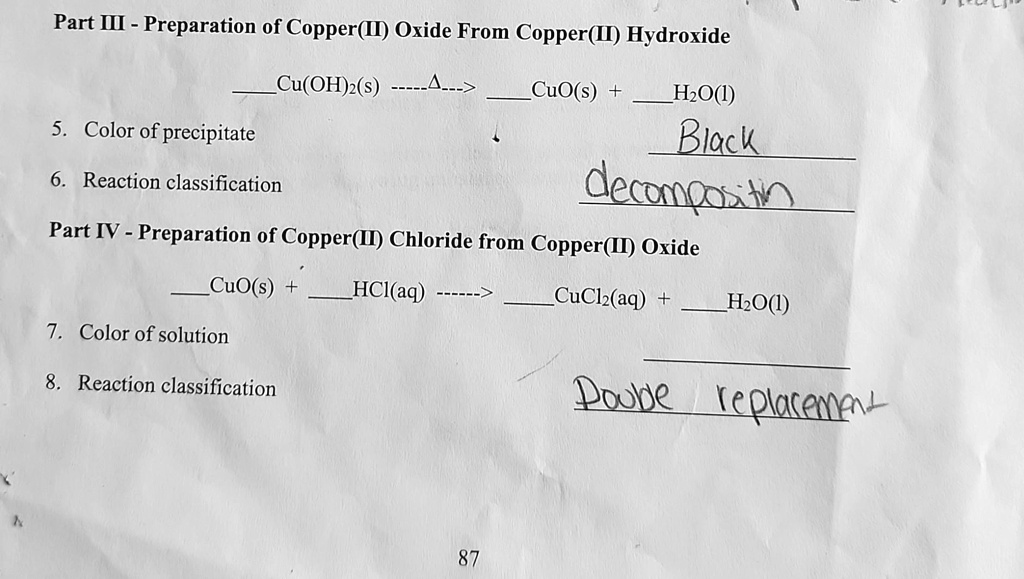 Part III - Preparation of Copper(II) Oxide From Copper(II) Hydroxide
___Cu(OH)2(s) -----Δ---> ___CuO(s) + ___H2O(l)
5. Color of precipitate Black
6. Reaction classification decompositin
Part IV - Preparation of Copper(II) Chloride from Copper(II) Oxide
___CuO(s) + ___HCl(aq) ------> ___CuCl2(aq) + ___H2O(l)
7. Color of solution
8. Reaction classification Double replacement
87